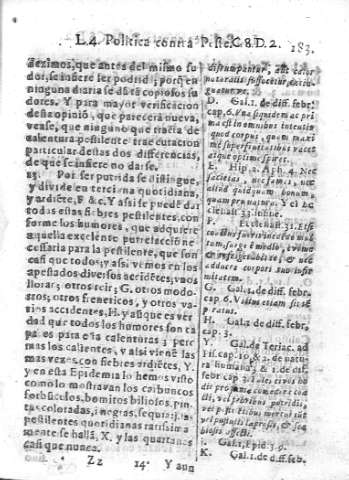 L.4. Politica contra Peste C.8.D.2. 183.
dezimos, que antes del mismo su
dor, se infiere ser podrida; porq en
ninguna diaria se dàtã copiosos su
dores. Y para mayor verificacion
desta opiniõ, que parecerà nueva,
vease, que ninguno que tracta de
calentura pestilente trae curacion
particular destas dos differencias,
de que se infiere no darse.
23. Por ser putrida se distingue,
y divide en terciana quotidiana,
y ardiẽte, F. & c. Y assi se puede dar
todas estas fiebres pestilentes, con
forme los humores, que adquierẽ
aquella excelente putrefacciõ ne
cessaria para la pestilente, que son
casi que todos; y assi vemos en los
apestados diversos accidẽtes; unos
llorar; otros reir; G. otros modo-
rros; otros freneticos, y otros va-
rios accidentes, H. y aũque es ver
dad que todos los humores son ca
pazes para esta calenturas; pero
mas los calientes, y assi viene las
mas vezes con fiebres ardiẽtes, Y.
y en esta Epidemia lo hemos visto
como lo mostravan los carbuncos
bomitos biliosos, pin-
tas coloradas, i negras, sequia; las
pestilentes quotidianas rarissima
mente se hallã, X. y las quartanas
casi que nunca.
Zz 14. Y aun
disrumpantur, aut calor
naturalis
D. Gal. 1. de diff. febr.
cap. 6. Vna siquidem ac pri
ma est in omnibus intentio
quod corpus, quam maxi
mè superfluitatibus vacet
atque optimè spiret.
E. Hip. 2. Aph. 4. Nec
facietas, nec fames, nec
aliud quidquam bonum,
quam pro natura. Vel Ec
clesiast 33. sanue.
F. Ecclesiast. 31. Et si
coactus fueris in edendo mul
tum, surge è medio, evome
& refrigerabit te, & non
adduces corpori tuo infir
mitatem.
G. Gal. 1. de diff. febr.
cap. 6. Victus etiam sit se
paratus.
H. Gal. 2 de diff. febr.
cap. 3.
Y. Gal. de Teriac. ad
Pis. cap. 10. & 2. de natura
humana, & 1. de dif.
febr. cap 3.
I. Gal. 1. Epid. 3. 9.
K. Gal. 1. de diff. feb.